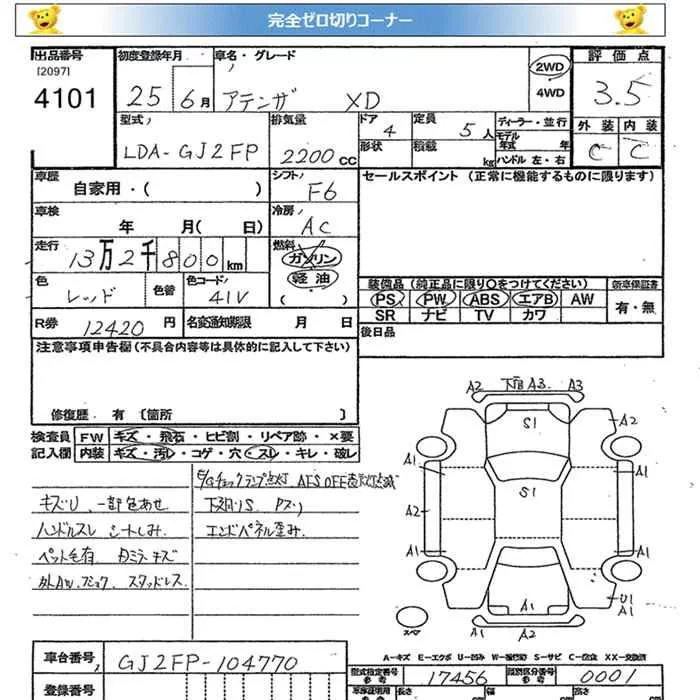 完全ゼロ切りコーナー
出品番号 初度登録年月 車名・グレード 2WD 評価点
[2097]
4101 25 6月 アテンザ XD 4WD 3.5
型式 排気量 ドア 4 定員 5人 ディーラー・並行 外装 内装
LDA-GJ2FP 2200cc 形状 積載 kg モデル年式 年 ハンドル左・右 C C
車歴 自家用・( ) シフト F6 セールスポイント(正常に機能するものに限ります)
車検 年 月( 日) 冷房 AC
走行 13万2千800km 燃料 ガソリン
軽油
色 レッド 色替 色コード 41V ( )
装備品(純正品に限り○をつけてください) 新車保証書
PS PW ABS エアB AW 有・無
SR ナビ TV カワ
R券 12420円 名変通知期限 月 日 後日品
注意事項申告欄(不具合内容等は具体的に記入して下さい)
修復歴 有 [箇所 ]
検査員 FW キズ・飛石・ヒビ割・リペア跡・×要
記入欄 内装 キズ・汚レ・コゲ・穴・スレ・キレ・破レ
E/Gチェックランプ点灯 AFS OFF
キズU 一部色あせ 下廻りS Pズリ
ハンドルスレ シートしみ エンドパネル歪み
ペット毛有 Dミラーキズ
外AW スタッドレス
A2 下廻 A3 A3
S1
A2
A1 A1
S1
A2
A1 A1
U1
A1 A1
A2
スペア
A-キズ E-エクボ U-凹み W-補修跡 S-サビ C-腐食 XX-交換済
車台番号 GJ2FP-104770
型式指定番号 参考 17456 類別区分番号 参考 0001
登録番号 長さ 幅 高さ